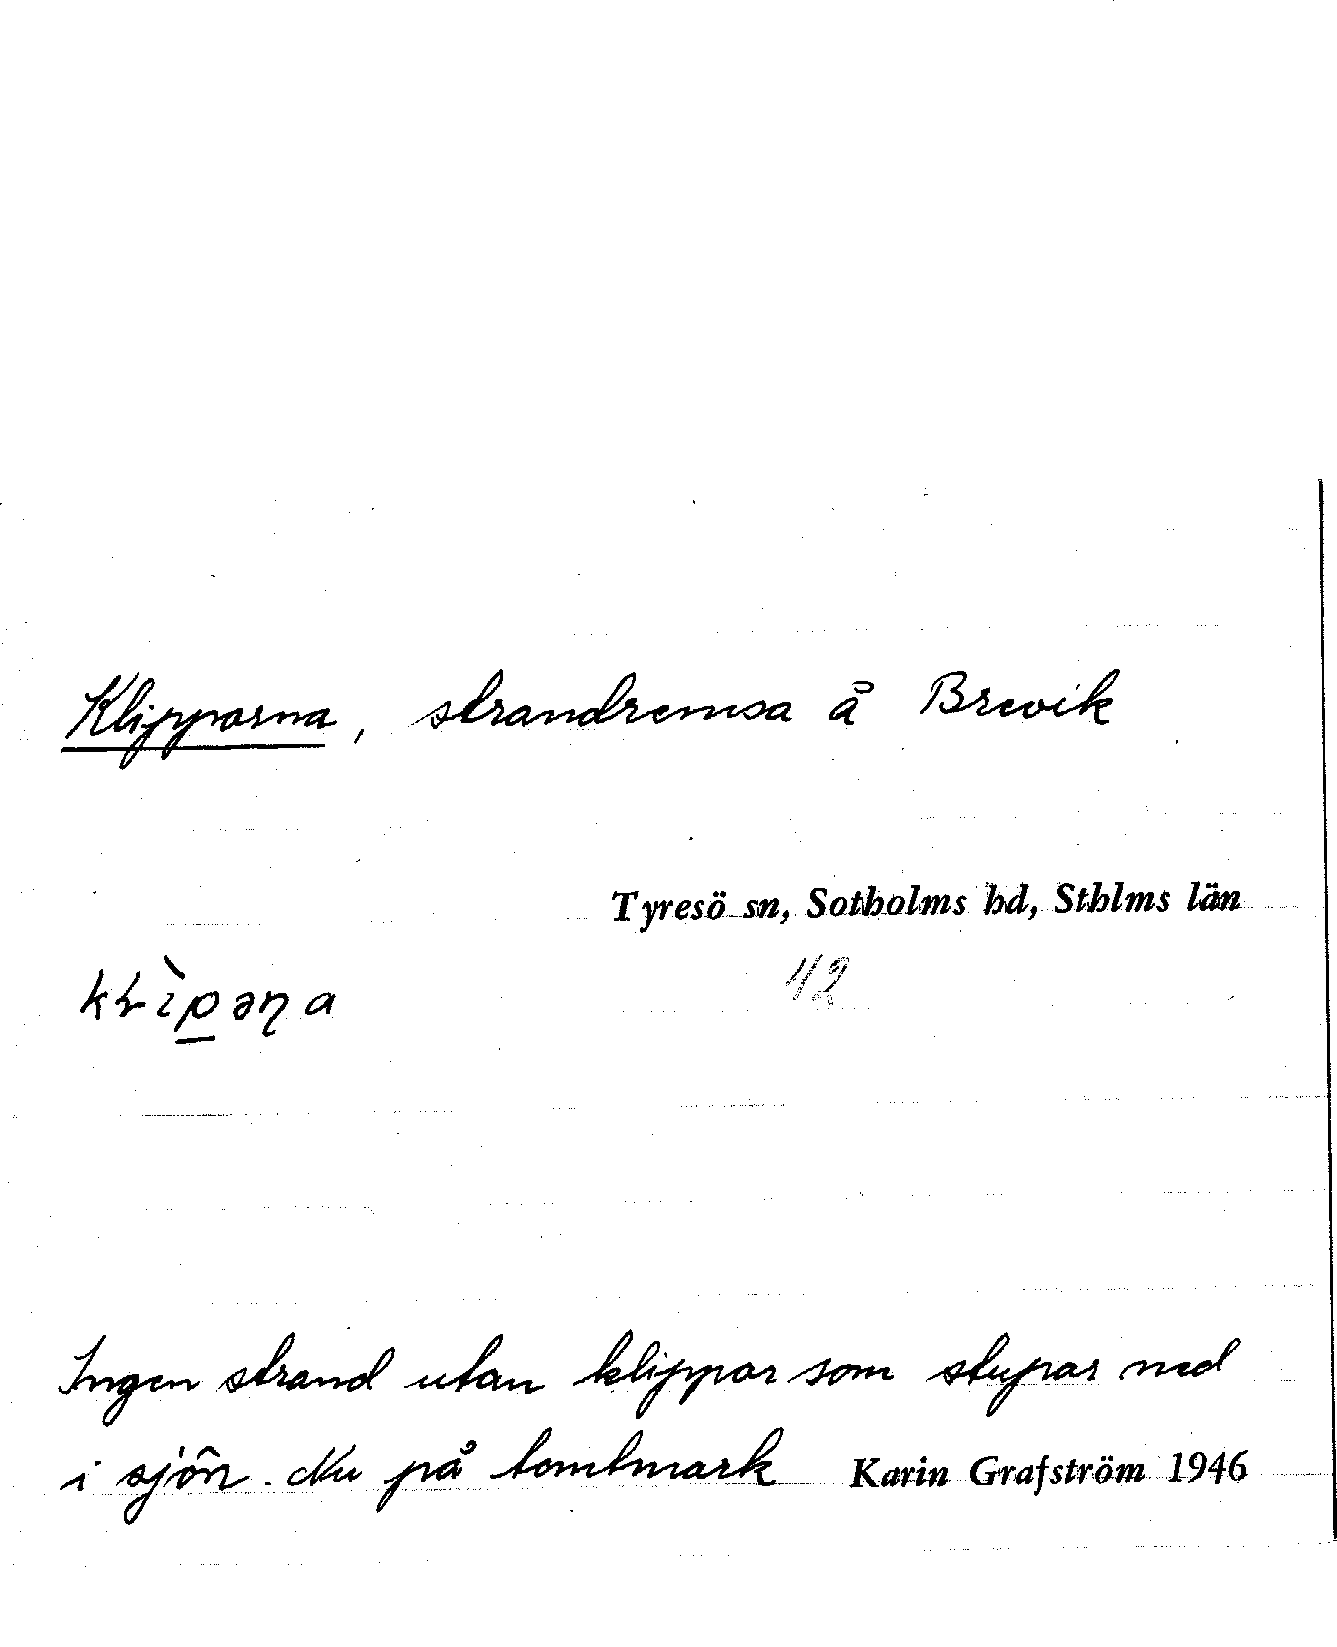 Klipparna, strandremsa å Brevik
Tyresö sn, Sotholms hd, Sthlms län
42
klìpəṇa
Ingen strand utan klippor som stupar ned
i sjön. Nu på tomtmark Karin Grafström 1946